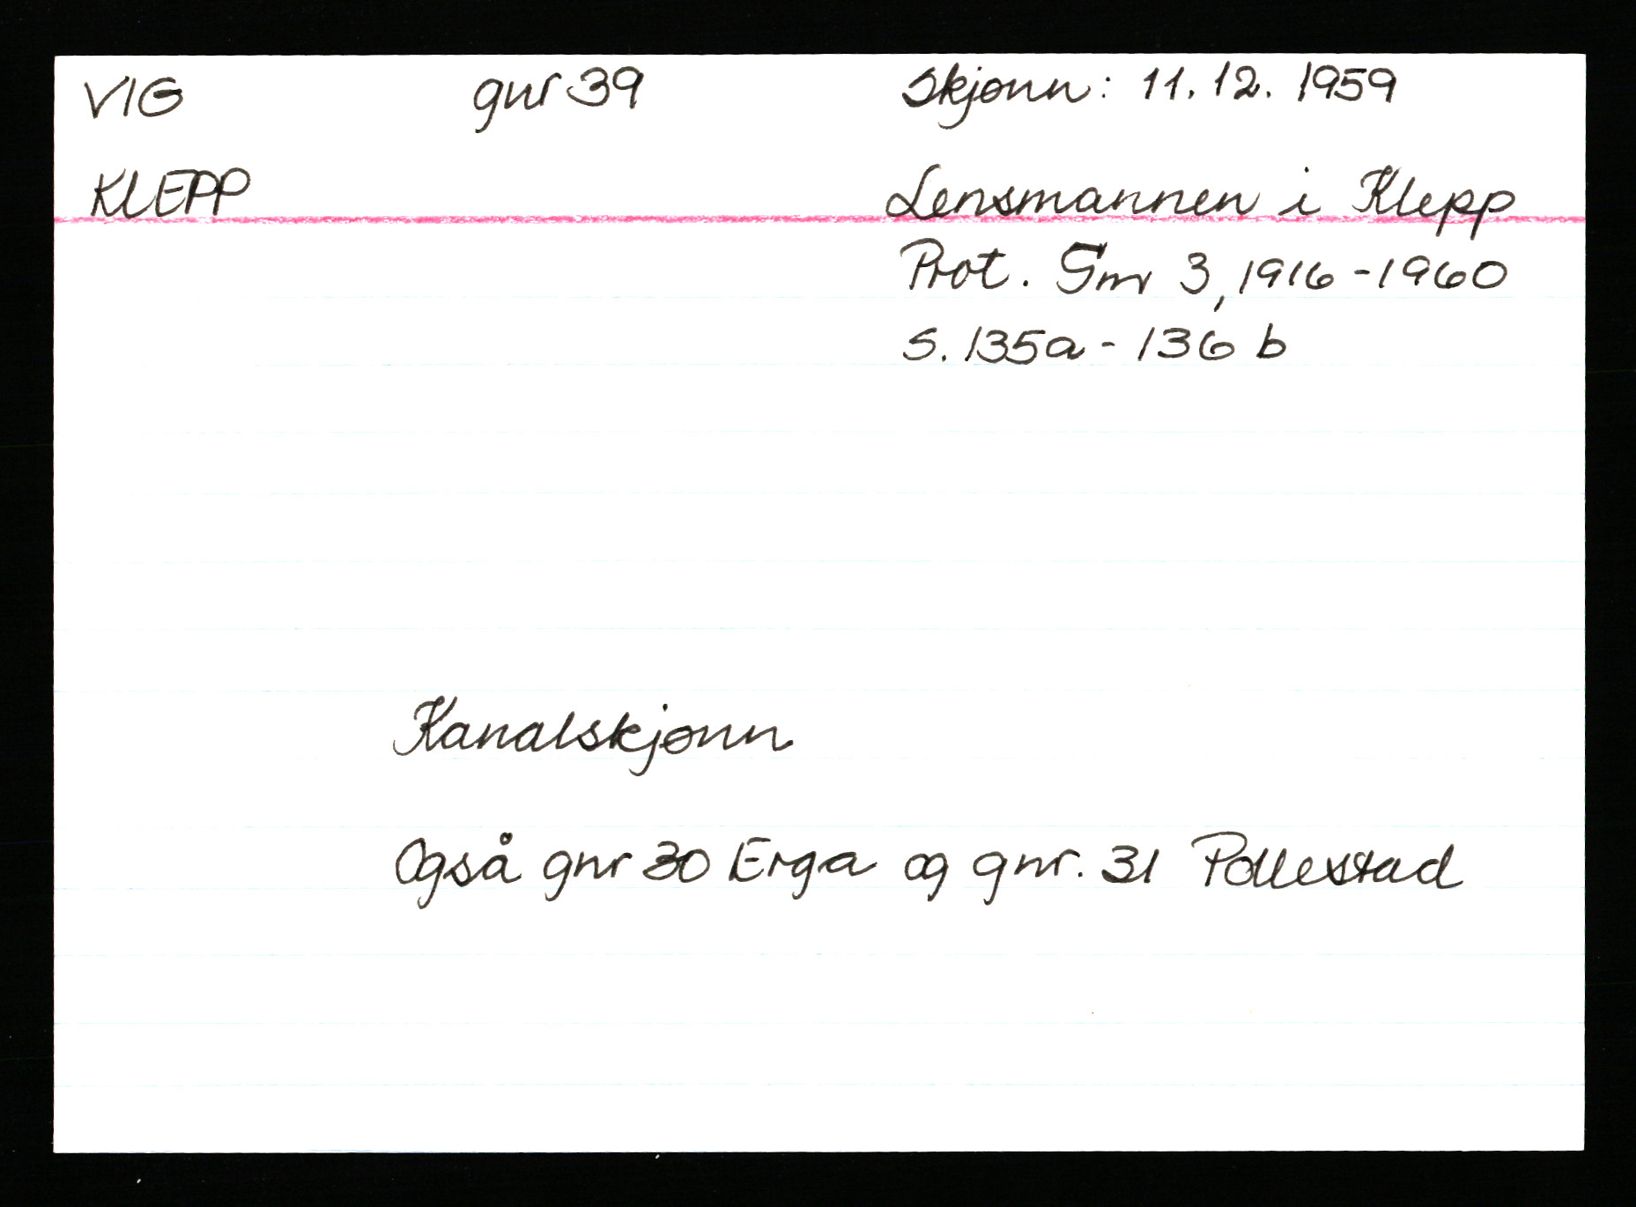 VIG gnr 39 Skjønn: 11.12.1959
KLEPP Lensmannen i Klepp
Prot. Gnr 3, 1916-1960
s. 135a - 136 b
Kanalskjønn
Også gnr 30 Erga og gnr. 31 Pollestad